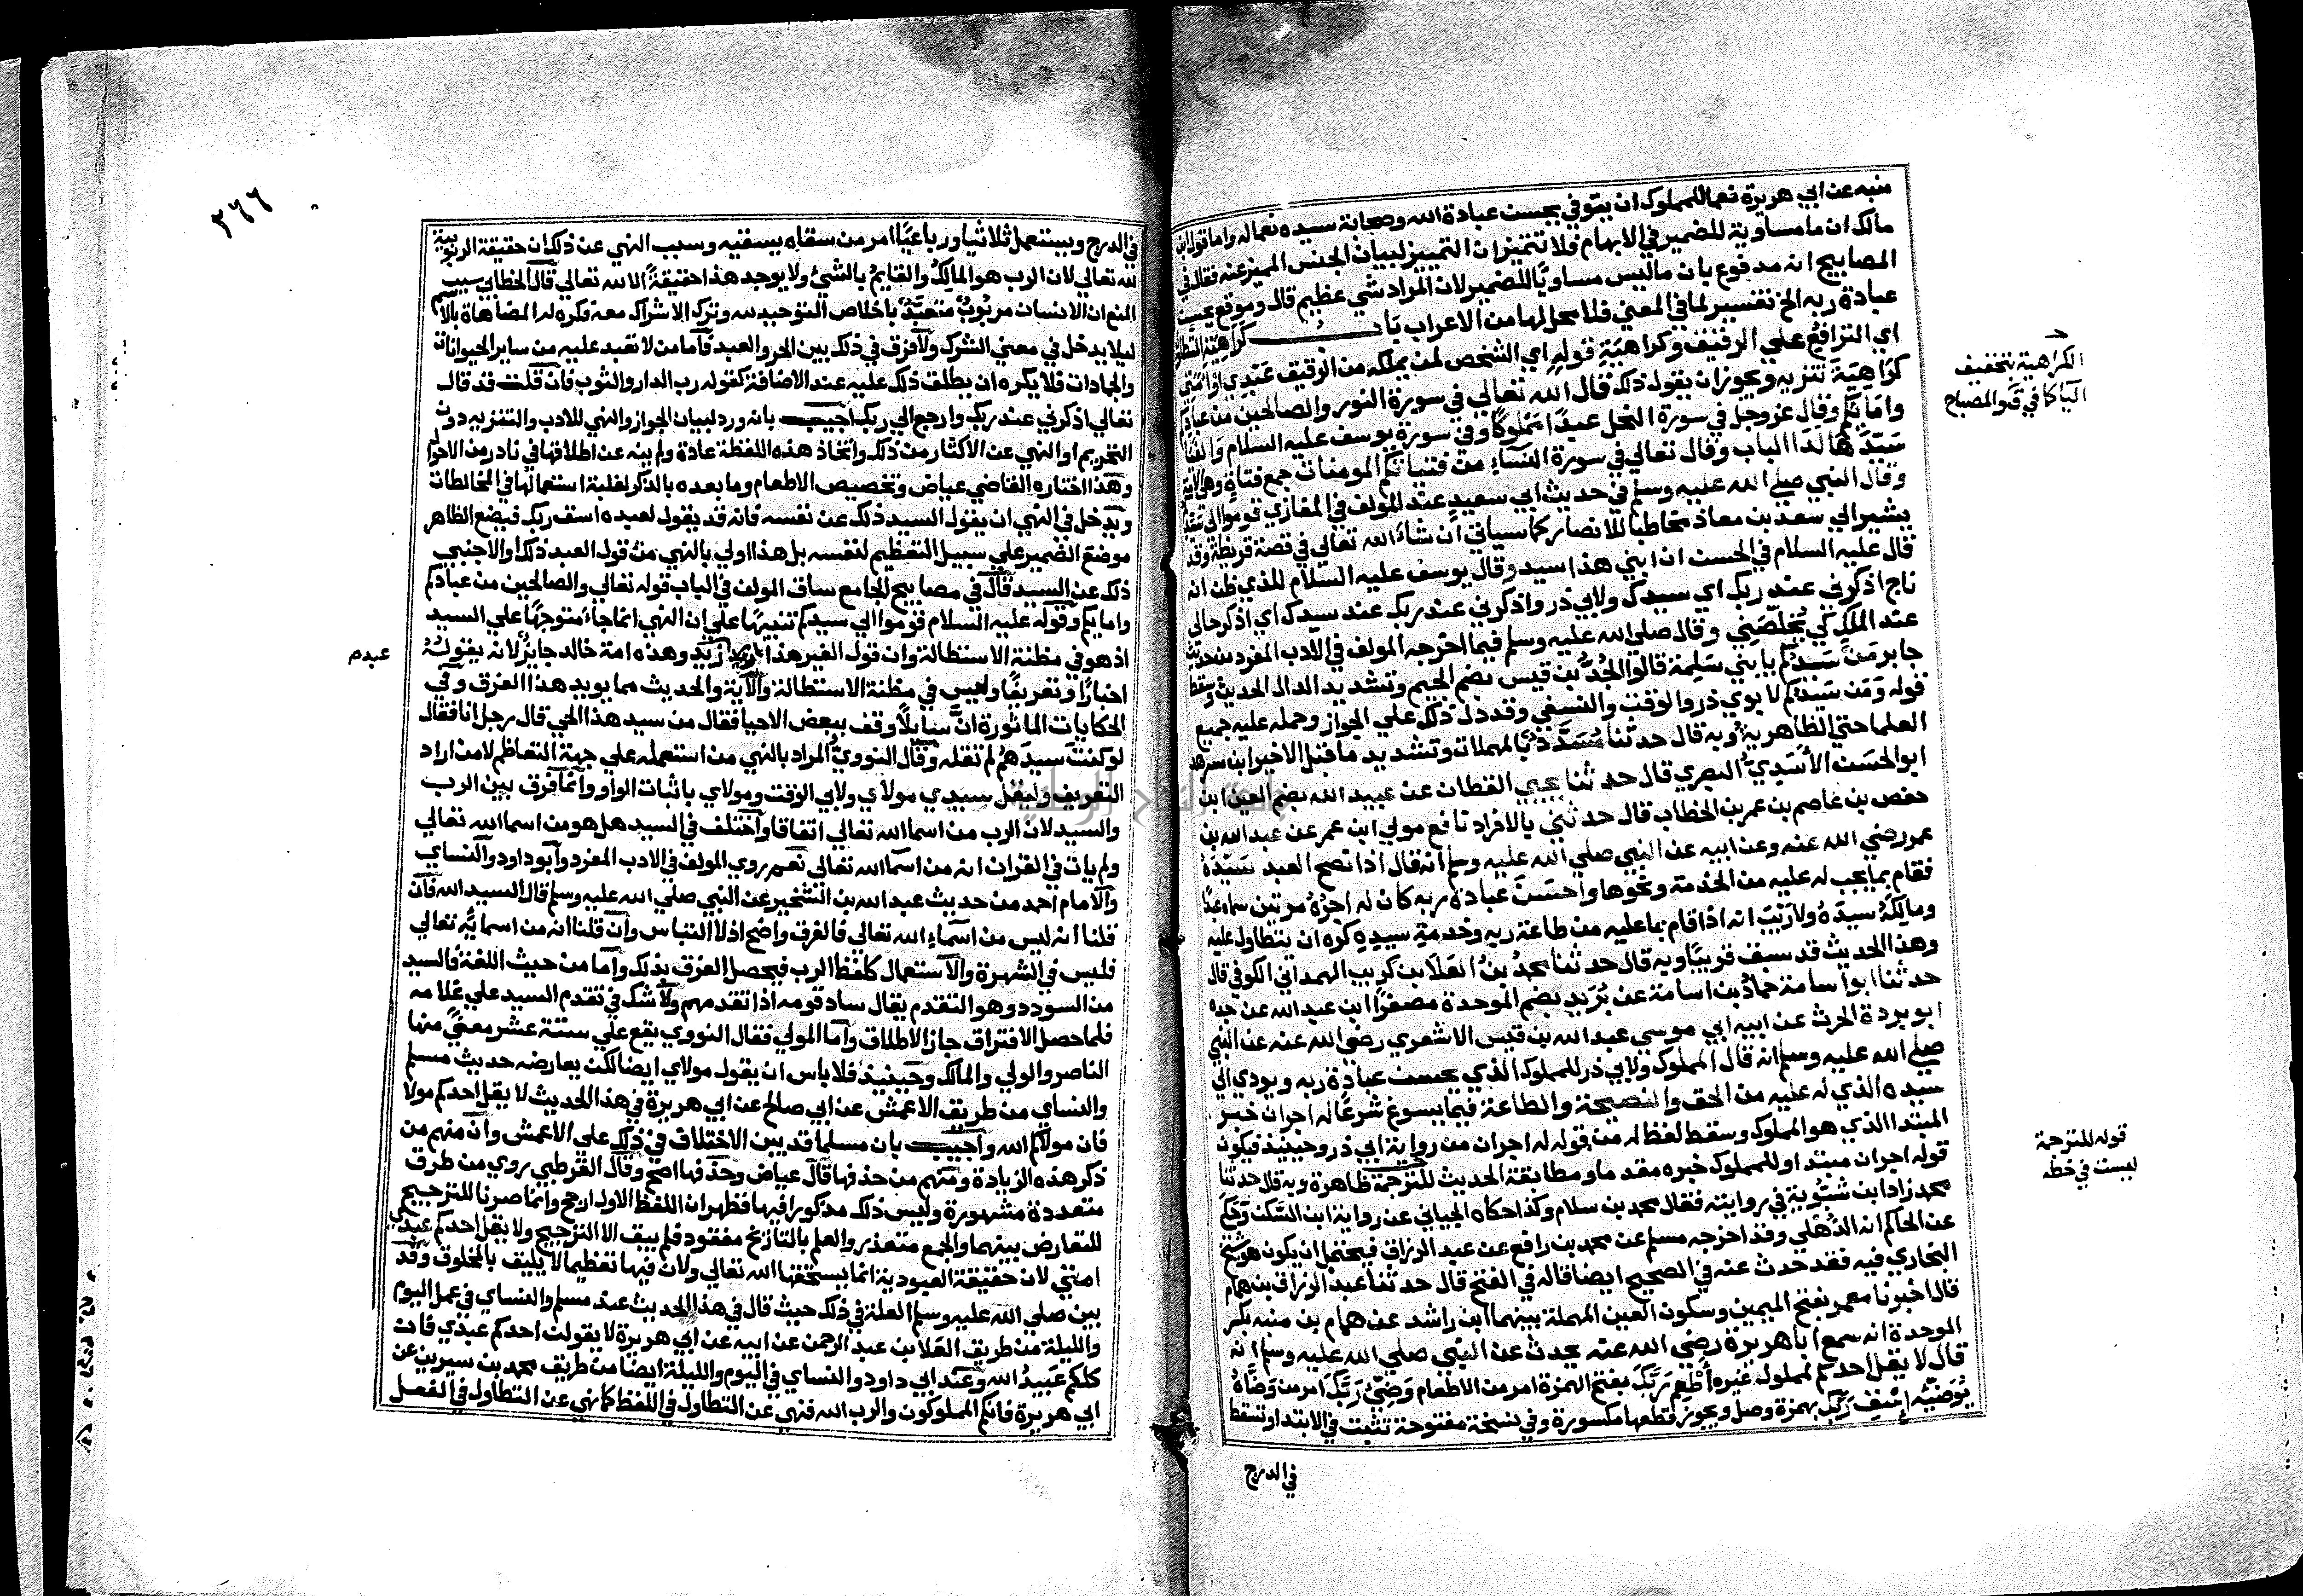 منبه عن ابي هريرة نعما للمملوك ان يتوفي يحسن عبادة الله وصحابة سيده نعما له واما قول ابن
مالك ان ما مساوية للضمير في الابهام فلا تتميز ان التمييز لبيان الجنس المميز عنه فقال في
المصابيح انه مدفوع بان ما ليس مساويا للضمير لان المراد شي عظيم قال وموقع يحسن
عبادة ربه الخ تفسير لما في المعني فلا محل لها من الاعراب باب كراهية التطاول
اي الترافع علي الرقيق وكراهية قوله اي الشخص لمن يملكه من الرقيق عبدي او امتي
كراهية تنزيه ويجوز ان يقول ذلك قال الله تعالي في سورة النور والصالحين من عبادكم
وامايكم وقال عز وجل في سورة النحل عبدا مملوكا وفي سورة يوسف عليه السلام والفيا
سيدها لدا الباب وقال تعالي في سورة النساء من فتياتكم المومنات جمع فتاة وهي الامة
وقال النبي صلي الله عليه وسلم في حديث ابي سعيد عند المولف في المغازي قوموا الي سيدكم
يشير الي سعد بن معاذ مخاطبا للانصار كما سياتي ان شاء الله تعالي في قصة قريظة وقد
قال عليه السلام في الحسن ان ابني هذا سيد وقال يوسف عليه السلام للذي ظن انه
ناج اذكرني عند ربك اي سيدك ولابي ذر واذكرني عند ربك عند سيدك اي اذكر حالي
عند الملك كي يخلصني وقال صلي الله عليه وسلم فيما اخرجه المولف في الادب المفرد من حديث
جابر من سيدكم يا بني سلمة قالوا الجد بن قيس بضم الجيم وتشديد الدال الحديث وسقط
قوله ومن سيدكم لابوي ذر والوقت والنسفي وقد دل ذلك علي الجواز وحمله عليه جميع
العلما حتي الظاهرية وبه قال حدثنا مسدد بالمهملات وتشديد ما قبل الاخير ابن مسرهد
ابو الحسن الاسدي البصري قال حدثنا يحيي القطان عن عبيد الله بضم العين ابن
حفص بن عاصم بن عمر بن الخطاب قال حدثني بالافراد نافع مولي ابن عمر عن عبد الله بن
عمر رضي الله عنه وعن ابيه عن النبي صلي الله عليه وسلم انه قال اذا نصح العبد سيده
فقام بما يجب له عليه من الخدمة ونحوها واحسن عبادة ربه كان له اجره مرتين سماه عبدا
ومالكه سيده ولا ريب انه اذا قام بما عليه من طاعة ربه وخدمة سيده كره ان يتطاول عليه
وهذا الحديث قد سبق قريبا وبه قال حدثنا محمد بن العلا بن كريب الهمداني الكوفي قال
حدثنا ابو اسامة حماد بن اسامة عن بريد بضم الموحدة مصغرا ابن عبد الله عن جده
ابو بردة الحرث عن ابيه ابي موسي عبد الله بن قيس الاشعري رضي الله عنه عن النبي
صلي الله عليه وسلم انه قال المملوك ولابي ذر للمملوك الذي يحسن عبادة ربه ويودي الي
سيده الذي له عليه من الحق والنصيحة والطاعة فيما يسوغ شرعا له اجران خبر
المبتدا الذي هو المملوك وسقط لفظ له من قوله له اجران من رواية ابي ذر وحينيذ فيكون
قوله اجران مبتدا وللمملوك خبره مقدما ومطابقة الحديث للترجمة ظاهرة وبه قال حدثنا
محمد زاد ابن شبوية في روايته فقال محمد بن سلام وكذا حكاه الجياني عن رواية ابن السكن وحكي
عن الحاكم انه الذهلي وقد اخرجه مسلم عن محمد بن رافع عن عبد الرزاق فيحتمل ان يكون هو شيخ
البخاري فيه فقد حدث عنه في الصحيح ايضا قاله في الفتح قال حدثنا عبد الرزاق بن همام
قال اخبرنا معمر بفتح الميمين وسكون العين المهملة بينهما ابن راشد عن همام بن منبه بكسر
الموحدة انه سمع ابا هريرة رضي الله عنه يحدث عن النبي صلي الله عليه وسلم انه
قال لا يقل احدكم لمملوك غيره اطعم ربك بفتح الهمزة امر من الاطعام وضئ ربك امر من وضاه
يوضيه اسق ربك بهمزة وصل ويجوز قطعها مكسورة وفي نسخة مفتوحة تثبت في الابتدا وتسقط
في الدرج
الكراهية بتخفيف
اليا كما في قنو المصباح
قوله للترجمة
ليست في خطه
٣٦٦
في الدرج ويستعمل ثلاثيا ورباعيا امر من سقاه يسقيه وسبب النهي عن ذلك ان حقيقة الربوبية
لله تعالي لان الرب هو المالك والقايم بالشئ ولا يوجد هذا حقيقة الا لله تعالي قال الخطابي سبب
المنع ان الانسان مربوب متعبد باخلاص التوحيد لله وترك الاشراك معه فكره له المضاهاة بالاسم
ليلا يدخل في معني الشرك ولا فرق في ذلك بين الحر والعبد فاما من لا تعبد عليه من ساير الحيوانات
والجمادات فلا يكره ان يطلق ذلك عليه عند الاضافة كقوله رب الدار والثوب فان قلت قد قال
تعالي اذكرني عند ربك وارجع الي ربك اجيب بانه ورد لبيان الجواز والنهي للادب والتنزيه دون
التحريم او النهي عن الاكثار من ذلك واتخاذ هذه اللفظة عادة ولم ينه عن اطلاقها في نادر من الاحوال
وهذا اختاره القاضي عياض وتخصيص الاطعام وما بعده بالذكر لغلبة استعمالها في المخاطبات
ويدخل في النهي ان يقول السيد ذلك عن نفسه فانه قد يقول لعبده اسق ربك فيضع الظاهر
موضع الضمير علي سبيل التعظيم لنفسه بل هذا اولي بالنهي من قول العبد ذلك او الاجنبي
ذلك عن السيد قال في مصابيح الجامع ساق المولف في الباب قوله تعالي والصالحين من عبادكم
وامايكم وقوله عليه السلام قوموا الي سيدكم تنبيها علي ان النهي انما جا متوجها علي السيد
اذ هو في مظنة الاستطالة وان قول الغير هذا زيد وهذه امة خالد جايز لانه يقوله
عبدم
اخبارا وتعريفا وليس في مظنة الاستطالة والاية والحديث مما يويد هذا الفرق وفي
الحكايات الماثورة ان سايلا وقف ببعض الاحيا فقال من سيد هذا الحي قال رجل انا فقال
لو كنت سيدهم لم تقله وقال النووي المراد بالنهي من استعمله علي جهة التعاظم لا من اراد
التعريف وليقل سيدي مولاي ولابي الوقت ومولاي باثبات الواو وانما فرق بين الرب
والسيد لان الرب من اسما الله تعالي اتفاقا واختلف في السيد هل هو من اسما الله تعالي
ولم يات في القران انه من اسما الله تعالي نعم روي المولف في الادب المفرد وابو داود والنساي
والامام احمد من حديث عبد الله بن الشخير عن النبي صلي الله عليه وسلم قال السيد الله فان
قلنا انه ليس من اسماء الله تعالي فالفرق واضح اذ لا التباس وان قلنا انه من اسمايه تعالي
فليس في الشهرة والاستعمال كلفظ الرب فيحصل الفرق بذلك واما من حيث اللغة فالسيد
من السودد وهو التقدم يقال ساد قومه اذا تقدمهم ولا شك في تقدم السيد علي غلامه
فلما حصل الافتراق جاز الاطلاق واما المولي فقال النووي يقع علي ستة عشر معني منها
الناصر والولي والمالك وحينيذ فلا باس ان يقول مولاي ايضا لكن يعارضه حديث مسلم
والنساي من طريق الاعمش عن ابي صالح عن ابي هريرة في هذا الحديث لا يقل احدكم مولا
فان مولاكم الله واجيب بان مسلما قد بين الاختلاف في ذلك علي الاعمش وان منهم من
ذكر هذه الزيادة ومنهم من حذفها قال عياض وحذفها اصح وقال القرطبي روي من طرق
متعددة مشهورة وليس ذلك مذكورا فيها فظهر ان اللفظ الاول ارجح وانما صرنا للترجيح
للتعارض بينهما والجمع متعذر والعلم بالتاريخ مفقود فلم يبق الا الترجيح ولا يقل احدكم عبدي
امتي لان حقيقة العبودية انما يستحقها الله تعالي ولان فيها تعظيما لا يليق بالمخلوق وقد
بين صلي الله عليه وسلم العلة في ذلك حيث قال في هذا الحديث عند مسلم والنساي في عمل اليوم
والليلة من طريق العلا بن عبد الرحمن عن ابيه عن ابي هريرة لا يقولن احدكم عبدي فان
كلكم عبيد الله وعند ابي داود والنساي في اليوم والليلة ايضا من طريق محمد بن سيرين عن
ابي هريرة فانكم المملوكون والرب الله فنهي عن التطاول في اللفظ كما نهي عن التطاول في الفعل